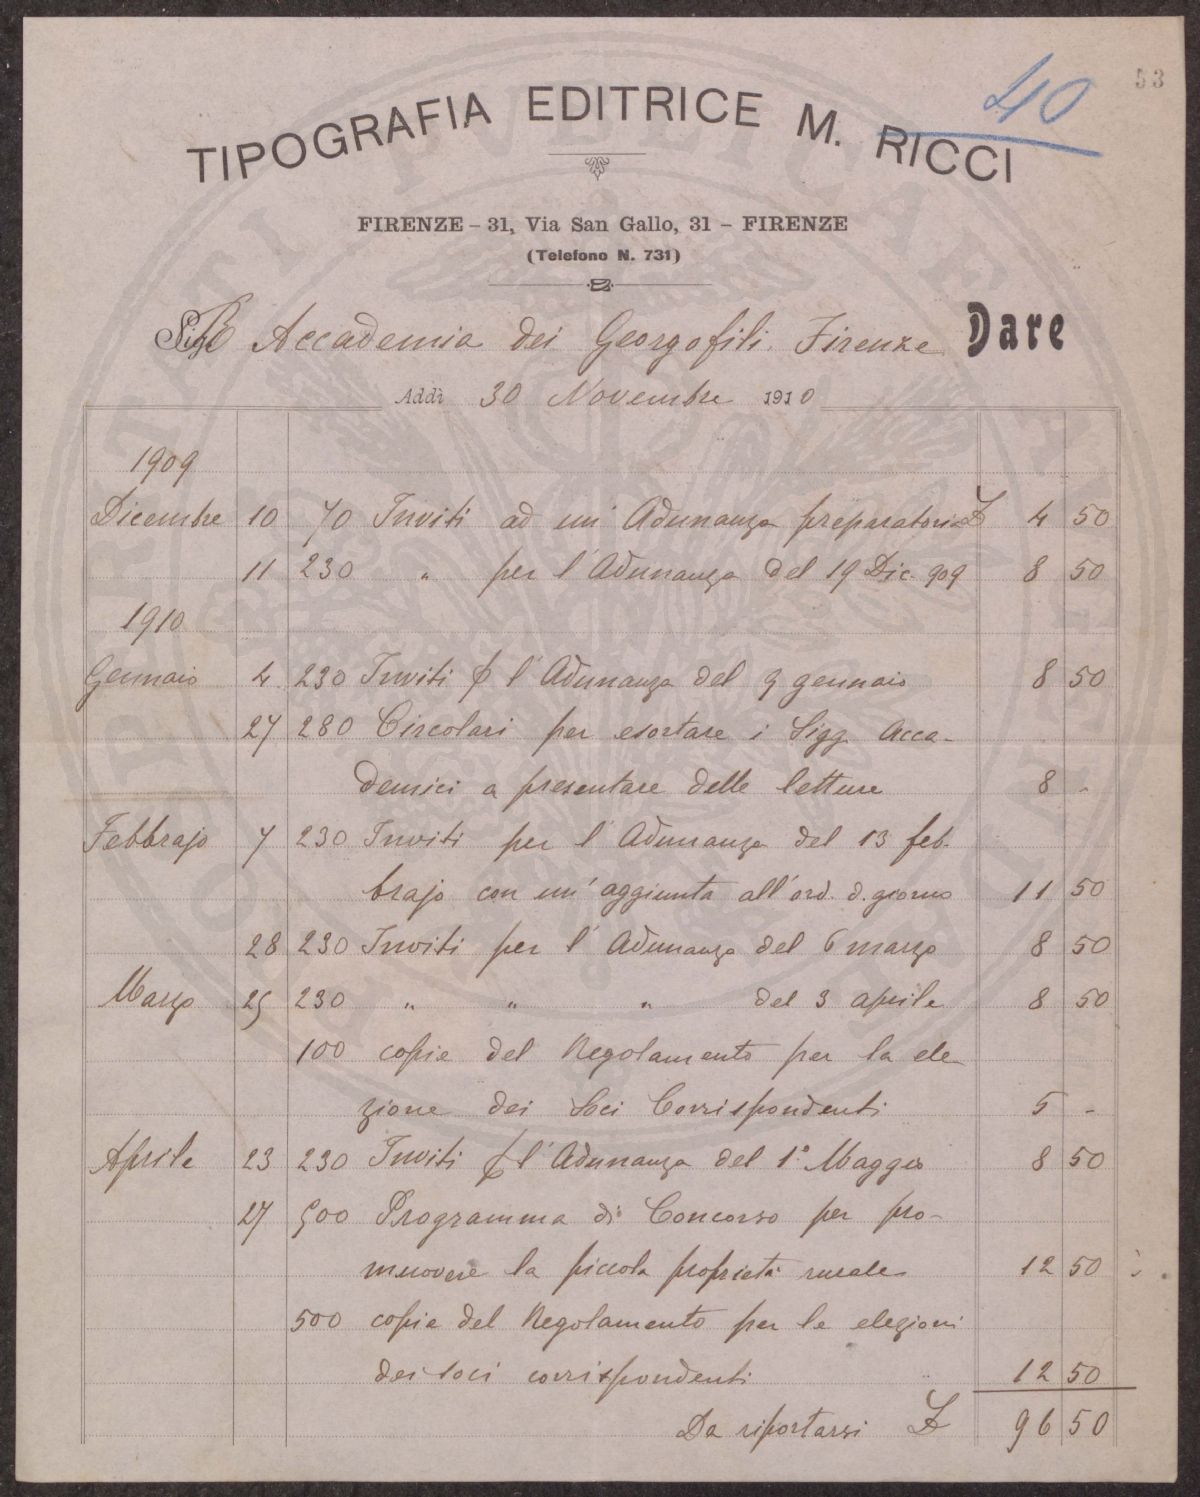 53
40
TIPOGRAFIA EDITRICE M. RICCI
FIRENZE – 31, Via San Gallo, 31 – FIRENZE
(Telefono N. 731)
Accademia dei Georgofili. Firenze Dare
Addì 30 Novembre 1910
1909
Dicembre 10 70 Inviti ad un' Adunanza preparatoria £ 4 50
11 230 " per l'Adunanza del 19 Dic. 909 8 50
1910
Gennaio 4 230 Inviti p l'Adunanza del 9 gennaio 8 50
27 280 Circolari per esortare i Sigg. Acca-
demici a presentare delle letture 8 -
Febbrajo 7 230 Inviti per l'Adunanza del 13 feb-
brajo con un'aggiunta all'ord. d. giorno 11 50
28 230 Inviti per l'Adunanza del 6 marzo 8 50
Marzo 25 230 " " " del 3 aprile 8 50
100 copie del Regolamento per la ele
zione dei Soci Corrispondenti 5 -
Aprile 23 230 Inviti p l'Adunanza del 1° Maggio 8 50
27 500 Programma di Concorso per pro-
muovere la piccola proprietà rurale 12 50
500 copie del Regolamento per le elezioni
dei soci corrispondenti 12 50
Da riportarsi £ 96 50